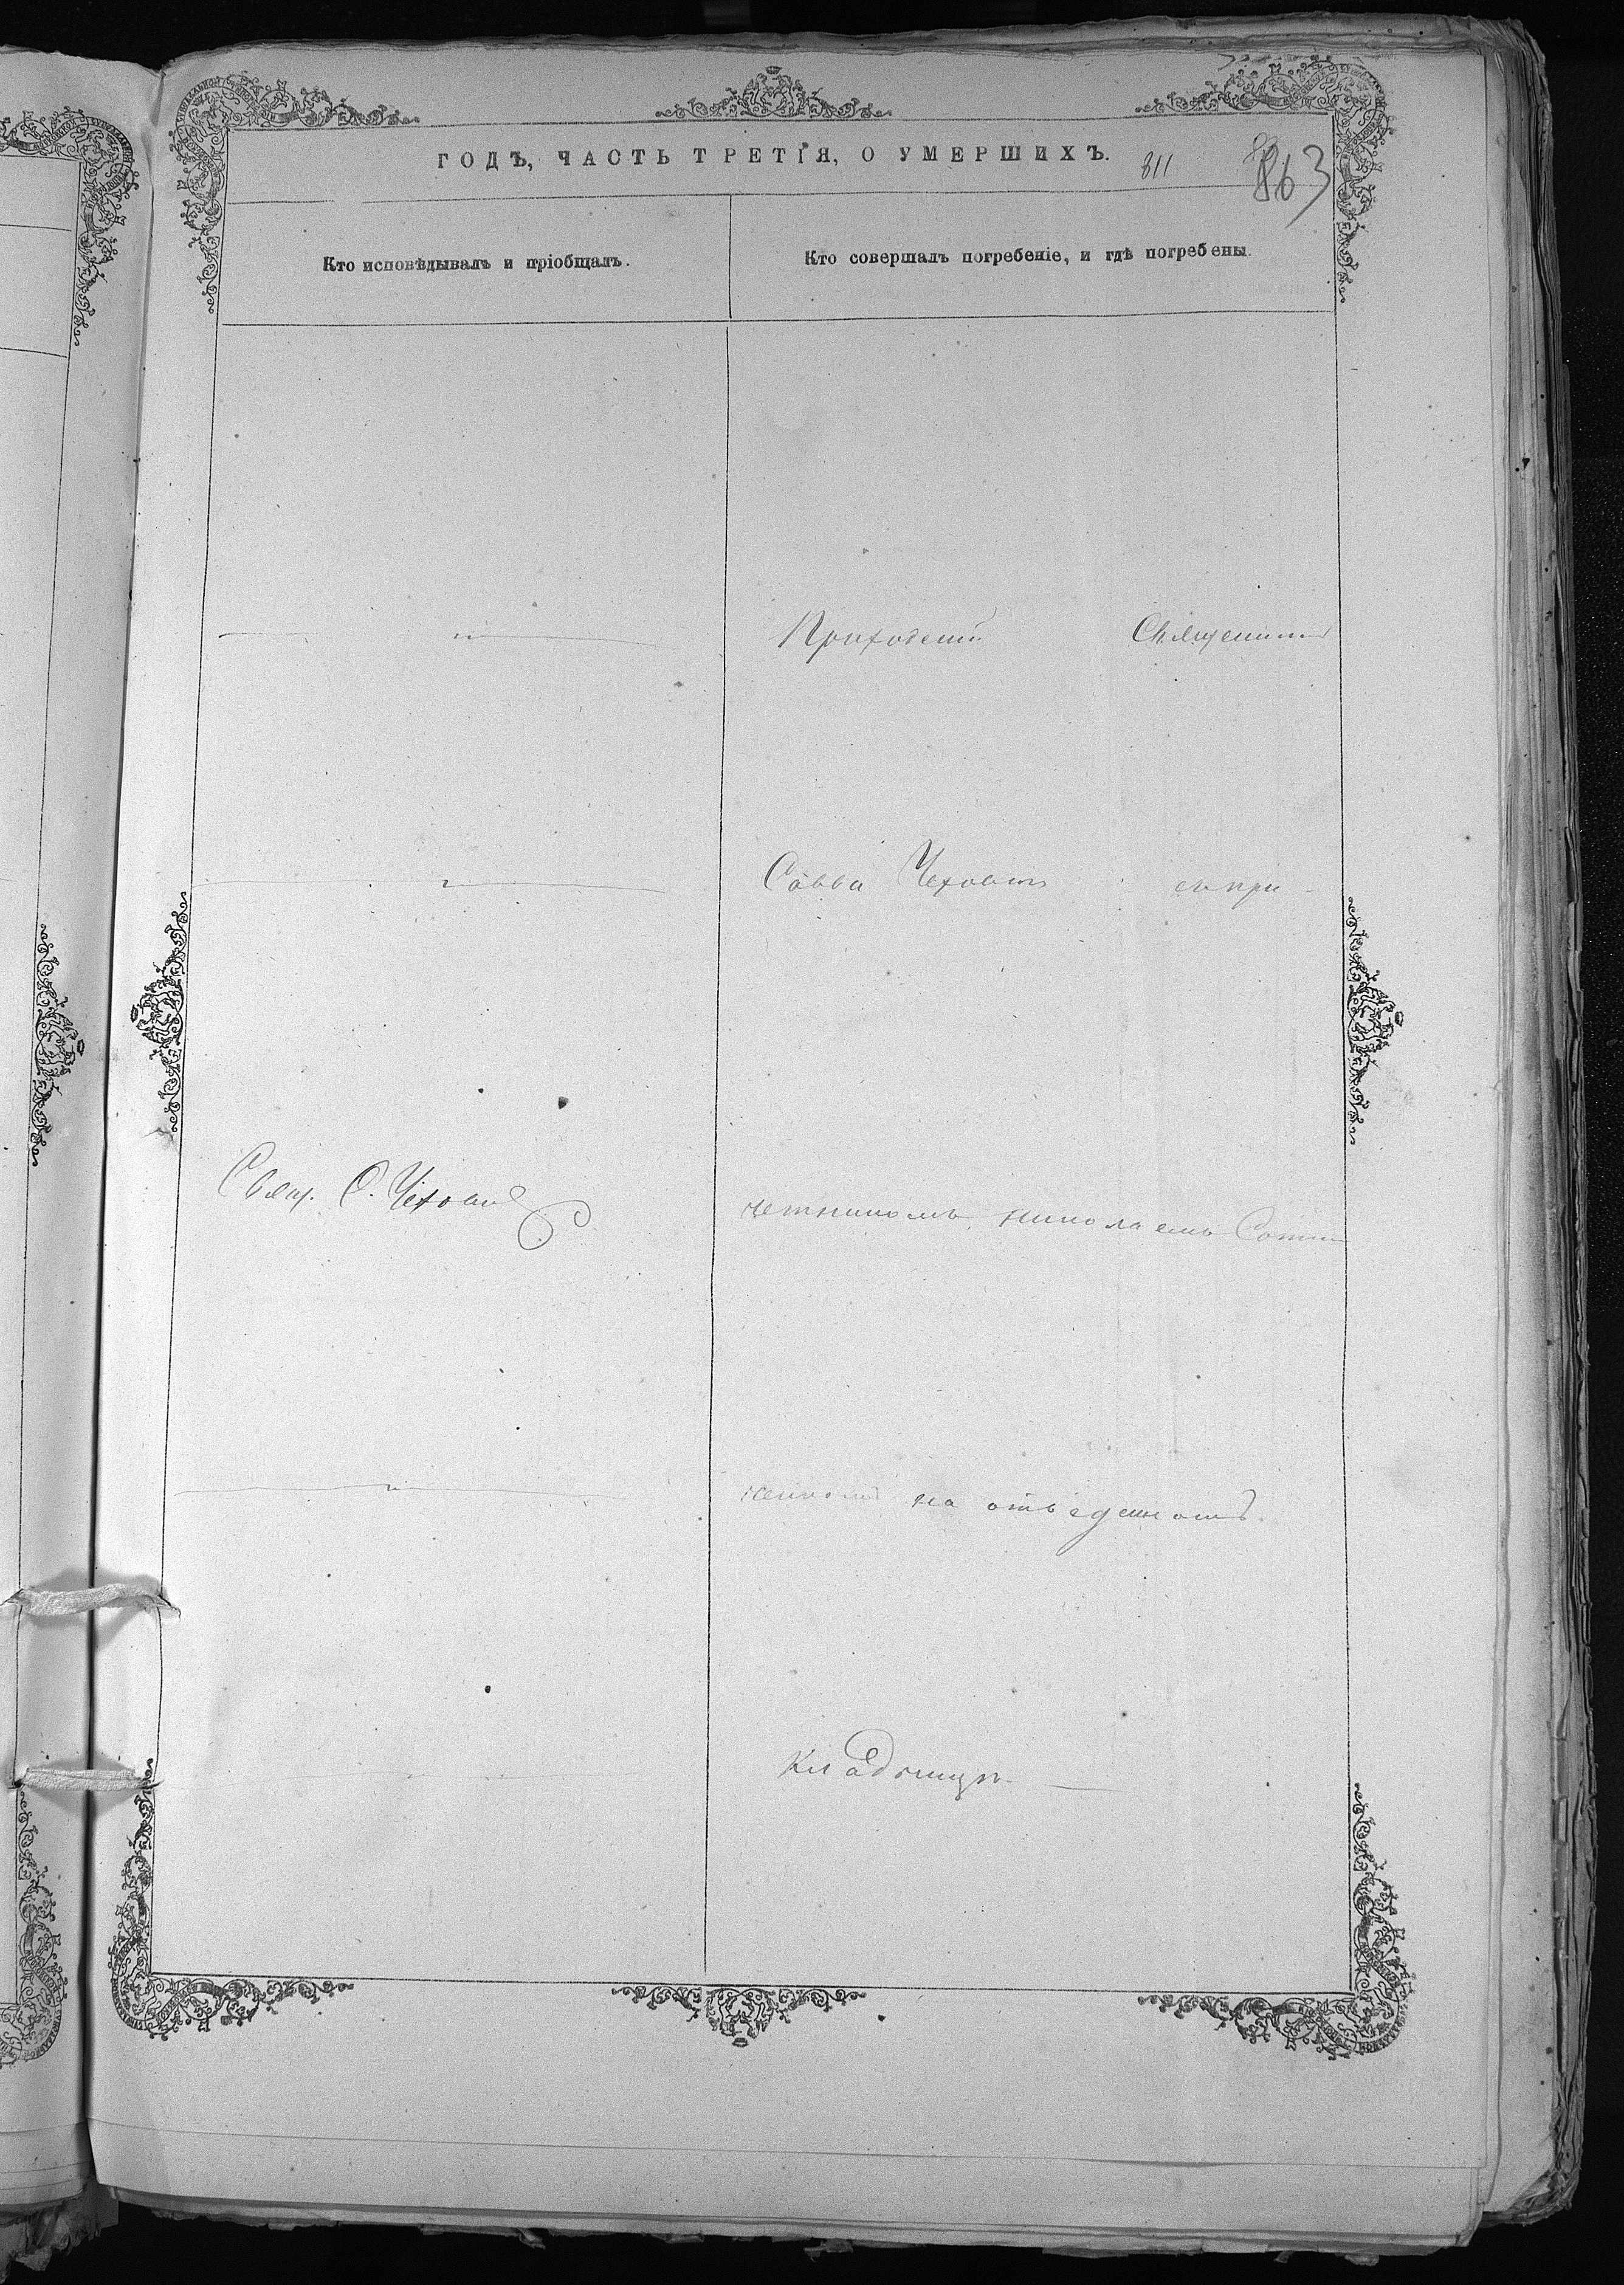 ГОДЪ, ЧАСТЬ ТРЕТІЯ, О УМЕРШИХЪ.
311
863
Кто исповѣдывалъ и пріобщалъ.
Кто совершалъ погребеніе, и гдѣ погребены.
Приходскій Священникъ
Савва Чеховичъ съ при-
Свящ. С. Чеховичъ
четникомъ Николаемъ
на отведенномъ
Кладбищѣ